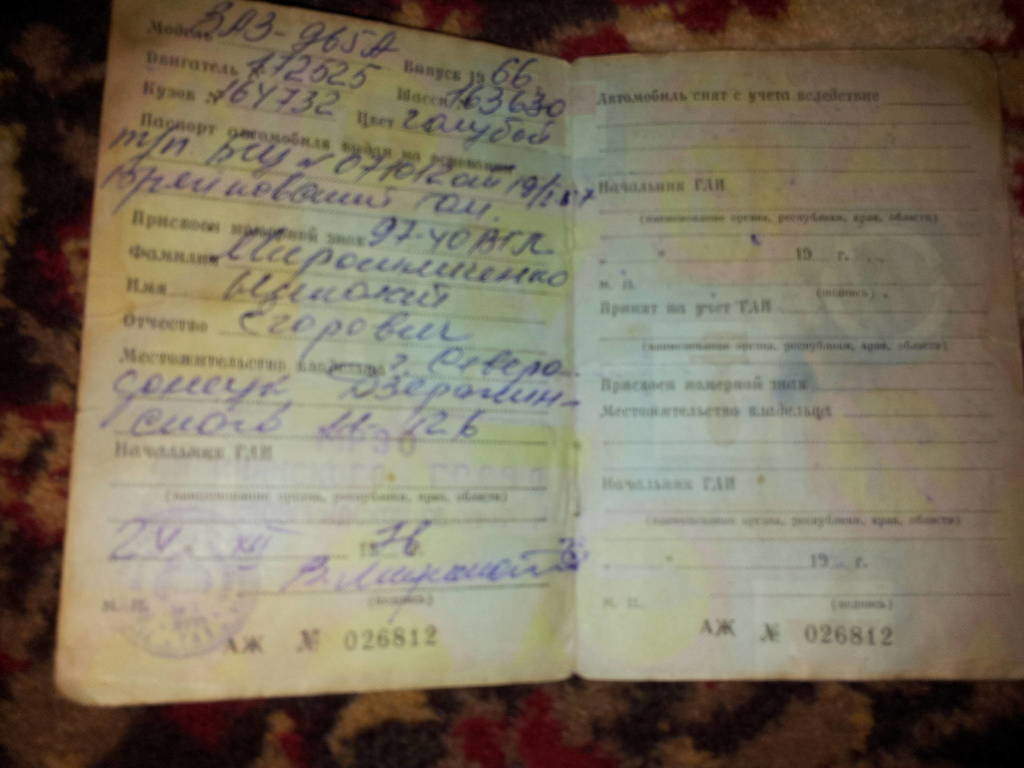 Модель ЗАЗ-965А
Двигатель № 172525 Выпуск 1966
Кузов № 164732 Шасси № 163630
Цвет голубой
Паспорт автомобиля выдан на основании
т/п БСЦ № 071012 от 19/
Присвоен номерной знак 97-40
Фамилия Мирошниченко
Имя Николай
Отчество Егорович
Местожительство владельца г. Северо-
донецк Дзержин-
ского 11-126
Начальник ГАИ
(наименование органа, республики, края, области)
24. XII 1976 г.
М. П. (подпись)
АЖ № 026812
Автомобиль снят с учета вследствие
Начальник ГАИ
(наименование органа, республики, края, области)
" " 19 г.
М. П. (подпись)
Принят на учет ГАИ
(наименование органа, республики, края, области)
Присвоен номерной знак
Местожительство владельца
Начальник ГАИ
(наименование органа, республики, края, области)
" " 19 г.
М. П. (подпись)
АЖ № 026812